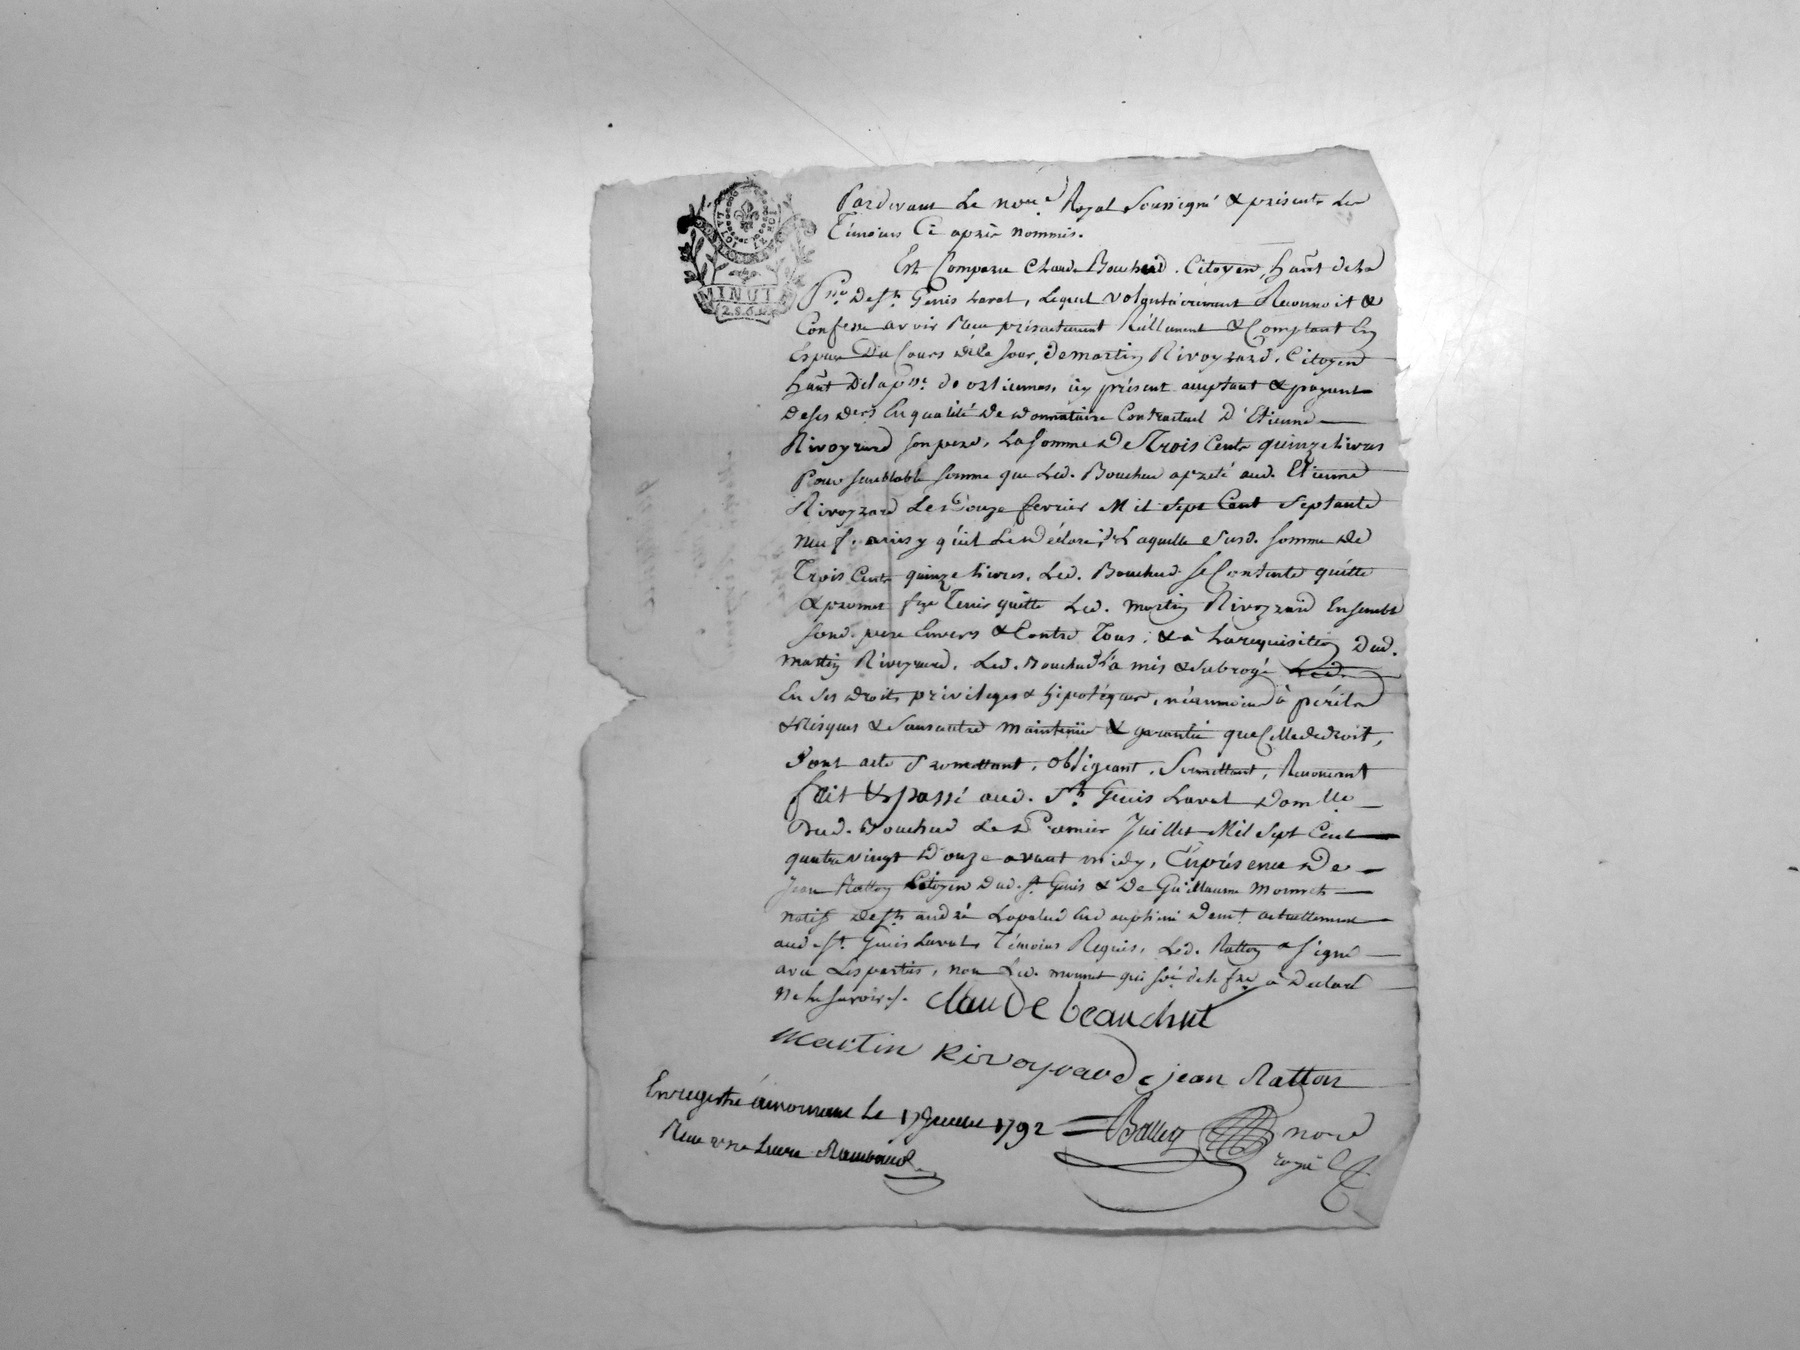 LA LOI ET LE ROI
MINUTE
2. S. 6. D.
Pardevant Le no.re Royal Soussigné & présents Les
Témoins Ci après nommés.
Est Comparu Claude Bouchud. Citoyen, hant de la
p.sse De St. Genis Laval, Lequel volontairement Reconnoit &
Confesse avoir Reçu présentement Réellement & Comptant En
Espèce Du Cours de Ce Jour, de martin Rivoyrard, Citoyen
hant De la p.sse de orlienas, icy présent acceptant & payant
De ses den.s En qualité de donnataire Contractuel D'Etienne
Rivoyrard son pere, La Somme De Trois Cents quinze Livres
Pour semblable somme que Led. Bouchud a prété aud. Etienne
Rivoyrard Le Douze fevrier Mil Sept Cent Septante
neuf. ainsy qu'il Le déclare, de Laquelle susd. Somme de
Trois Cents quinze Livres, Led. Bouchud Se Contente quitte
& promet fre Tenir quitte Led. Martin Rivoyrard Ensemble
sond. pere Envers & Contre Tous; & à La requisition Dud.
martin Rivoyrard, Led. Bouchud L'a mis & subrogé Led.
En ses droits privileges & hipotéques, néanmoins à périls
& Risques & Sans autre maintenüe & garantie que Celle de droit,
Dont acte Promettant, obligeant, Soumettant, Renoncant
fait & passé aud. St. Genis Laval Domlle
Dud. Bouchud Le Premier Juillet Mil Sept Cent
quatre vingt Douze avant midy, En présence De
Jean Ratton Citoyen Dud. St. Genis & De Guillaume Monnet
natif de St. andré Lapalud En dauphiné Dem.t actuellement
aud. St. Genis Laval Témoins Requis, Led. Ratton a Signé
avec Les parties, non Led. monnet qui de le fre a Déclaré
Ne Le Savoir.
claude beauchut
martin Rivoyrard jean Ratton
Enregistré à mornant Le 17 Juillet 1792
no.re
Reçu une Livre
royal